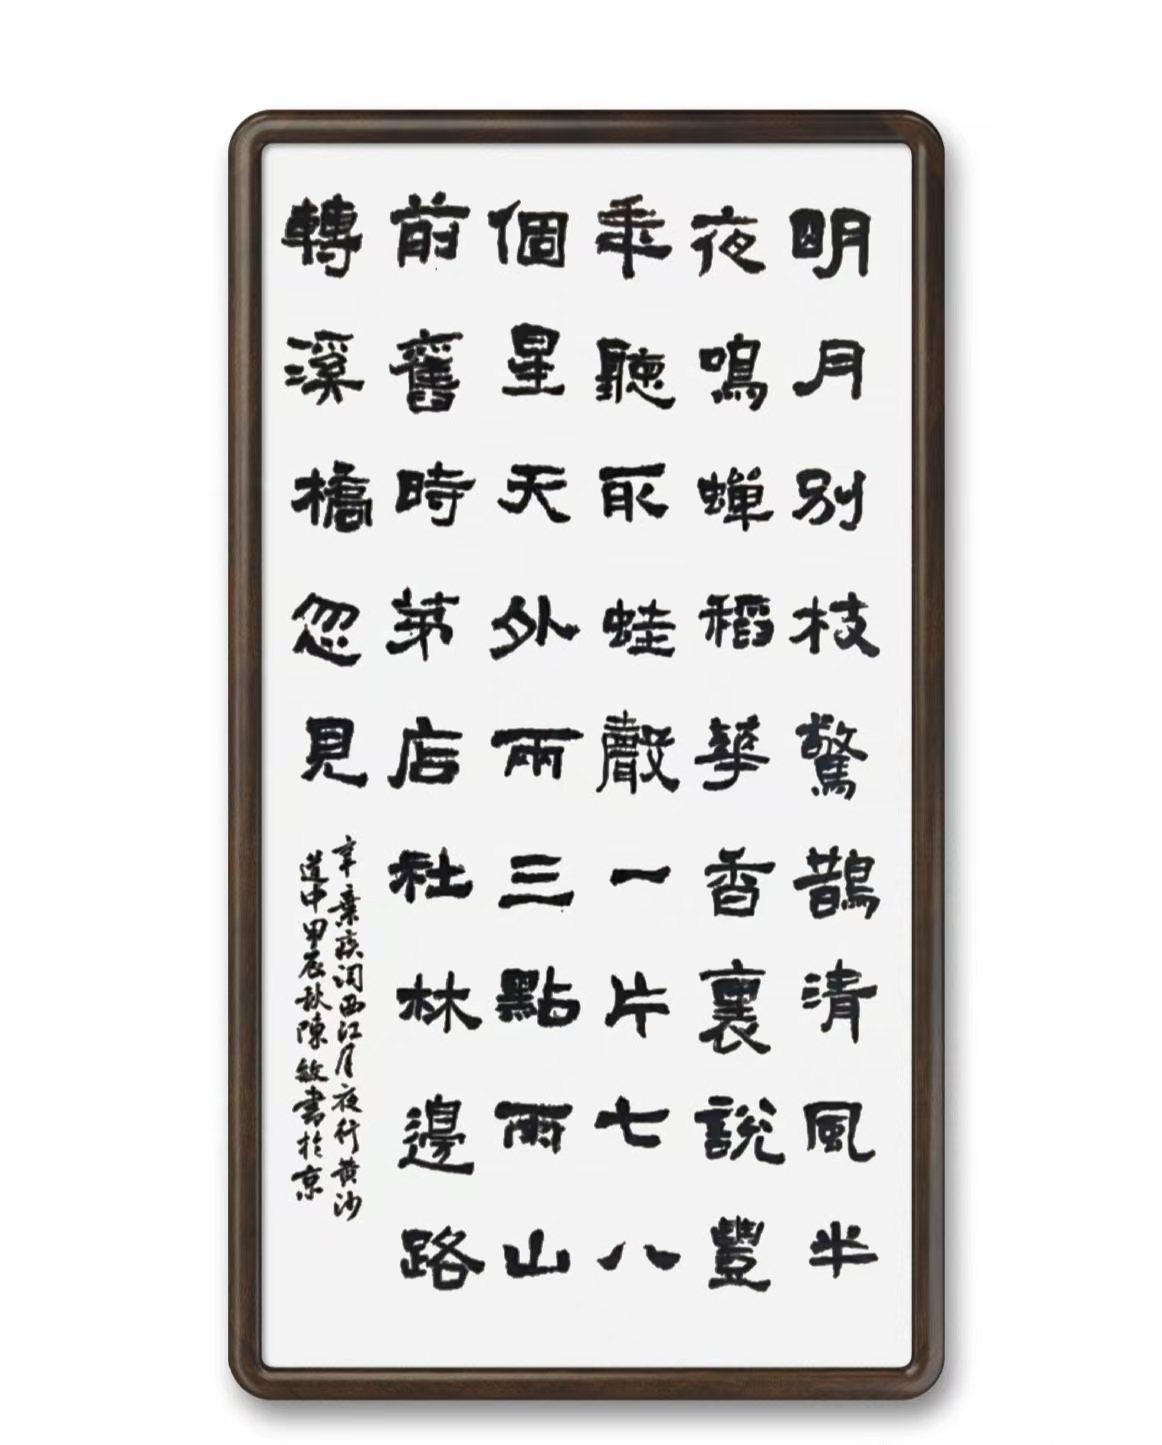 明月別枝驚鵲清風半
夜鳴蟬稻華香裏說豐
秊聽取蛙聲一片七八
個星天外兩三點雨山
前舊時茅店社林邊路
轉溪橋忽見
辛棄疾詞西江月夜行黃沙
道中甲辰秋陳敏書於京